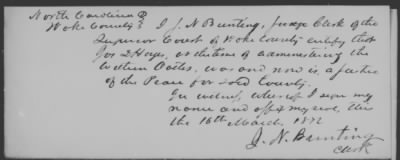 North Carolina }
Wake County } I J. N. Bunting, Judge Clerk of the
Superior Court of Wake County certify that
Jos D Hayes, at the time of administering the
written Oaths, was and now is a Justice
of the Peace for said County.
In witness whereof I sign my
name and affix my seal, this
the 16th March 1872
J. N. Bunting
Clerk